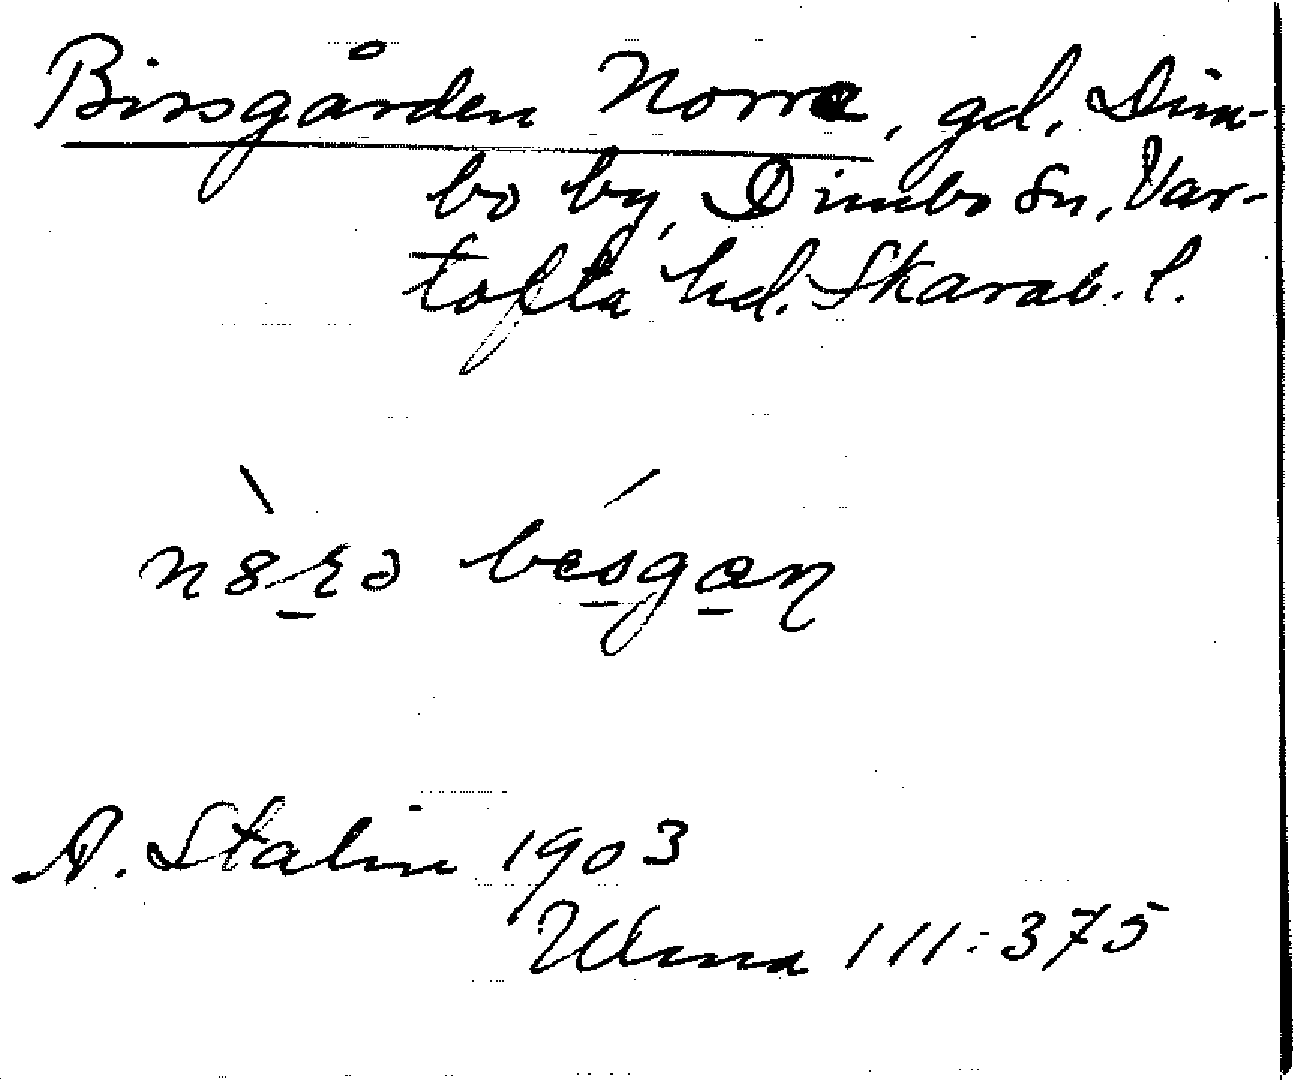 Birsgården Norra, gd, Dim-
bo by, Dimbo sn, Var-
tofta hd. Skarab. l.
A. Stalin 1903
111:375